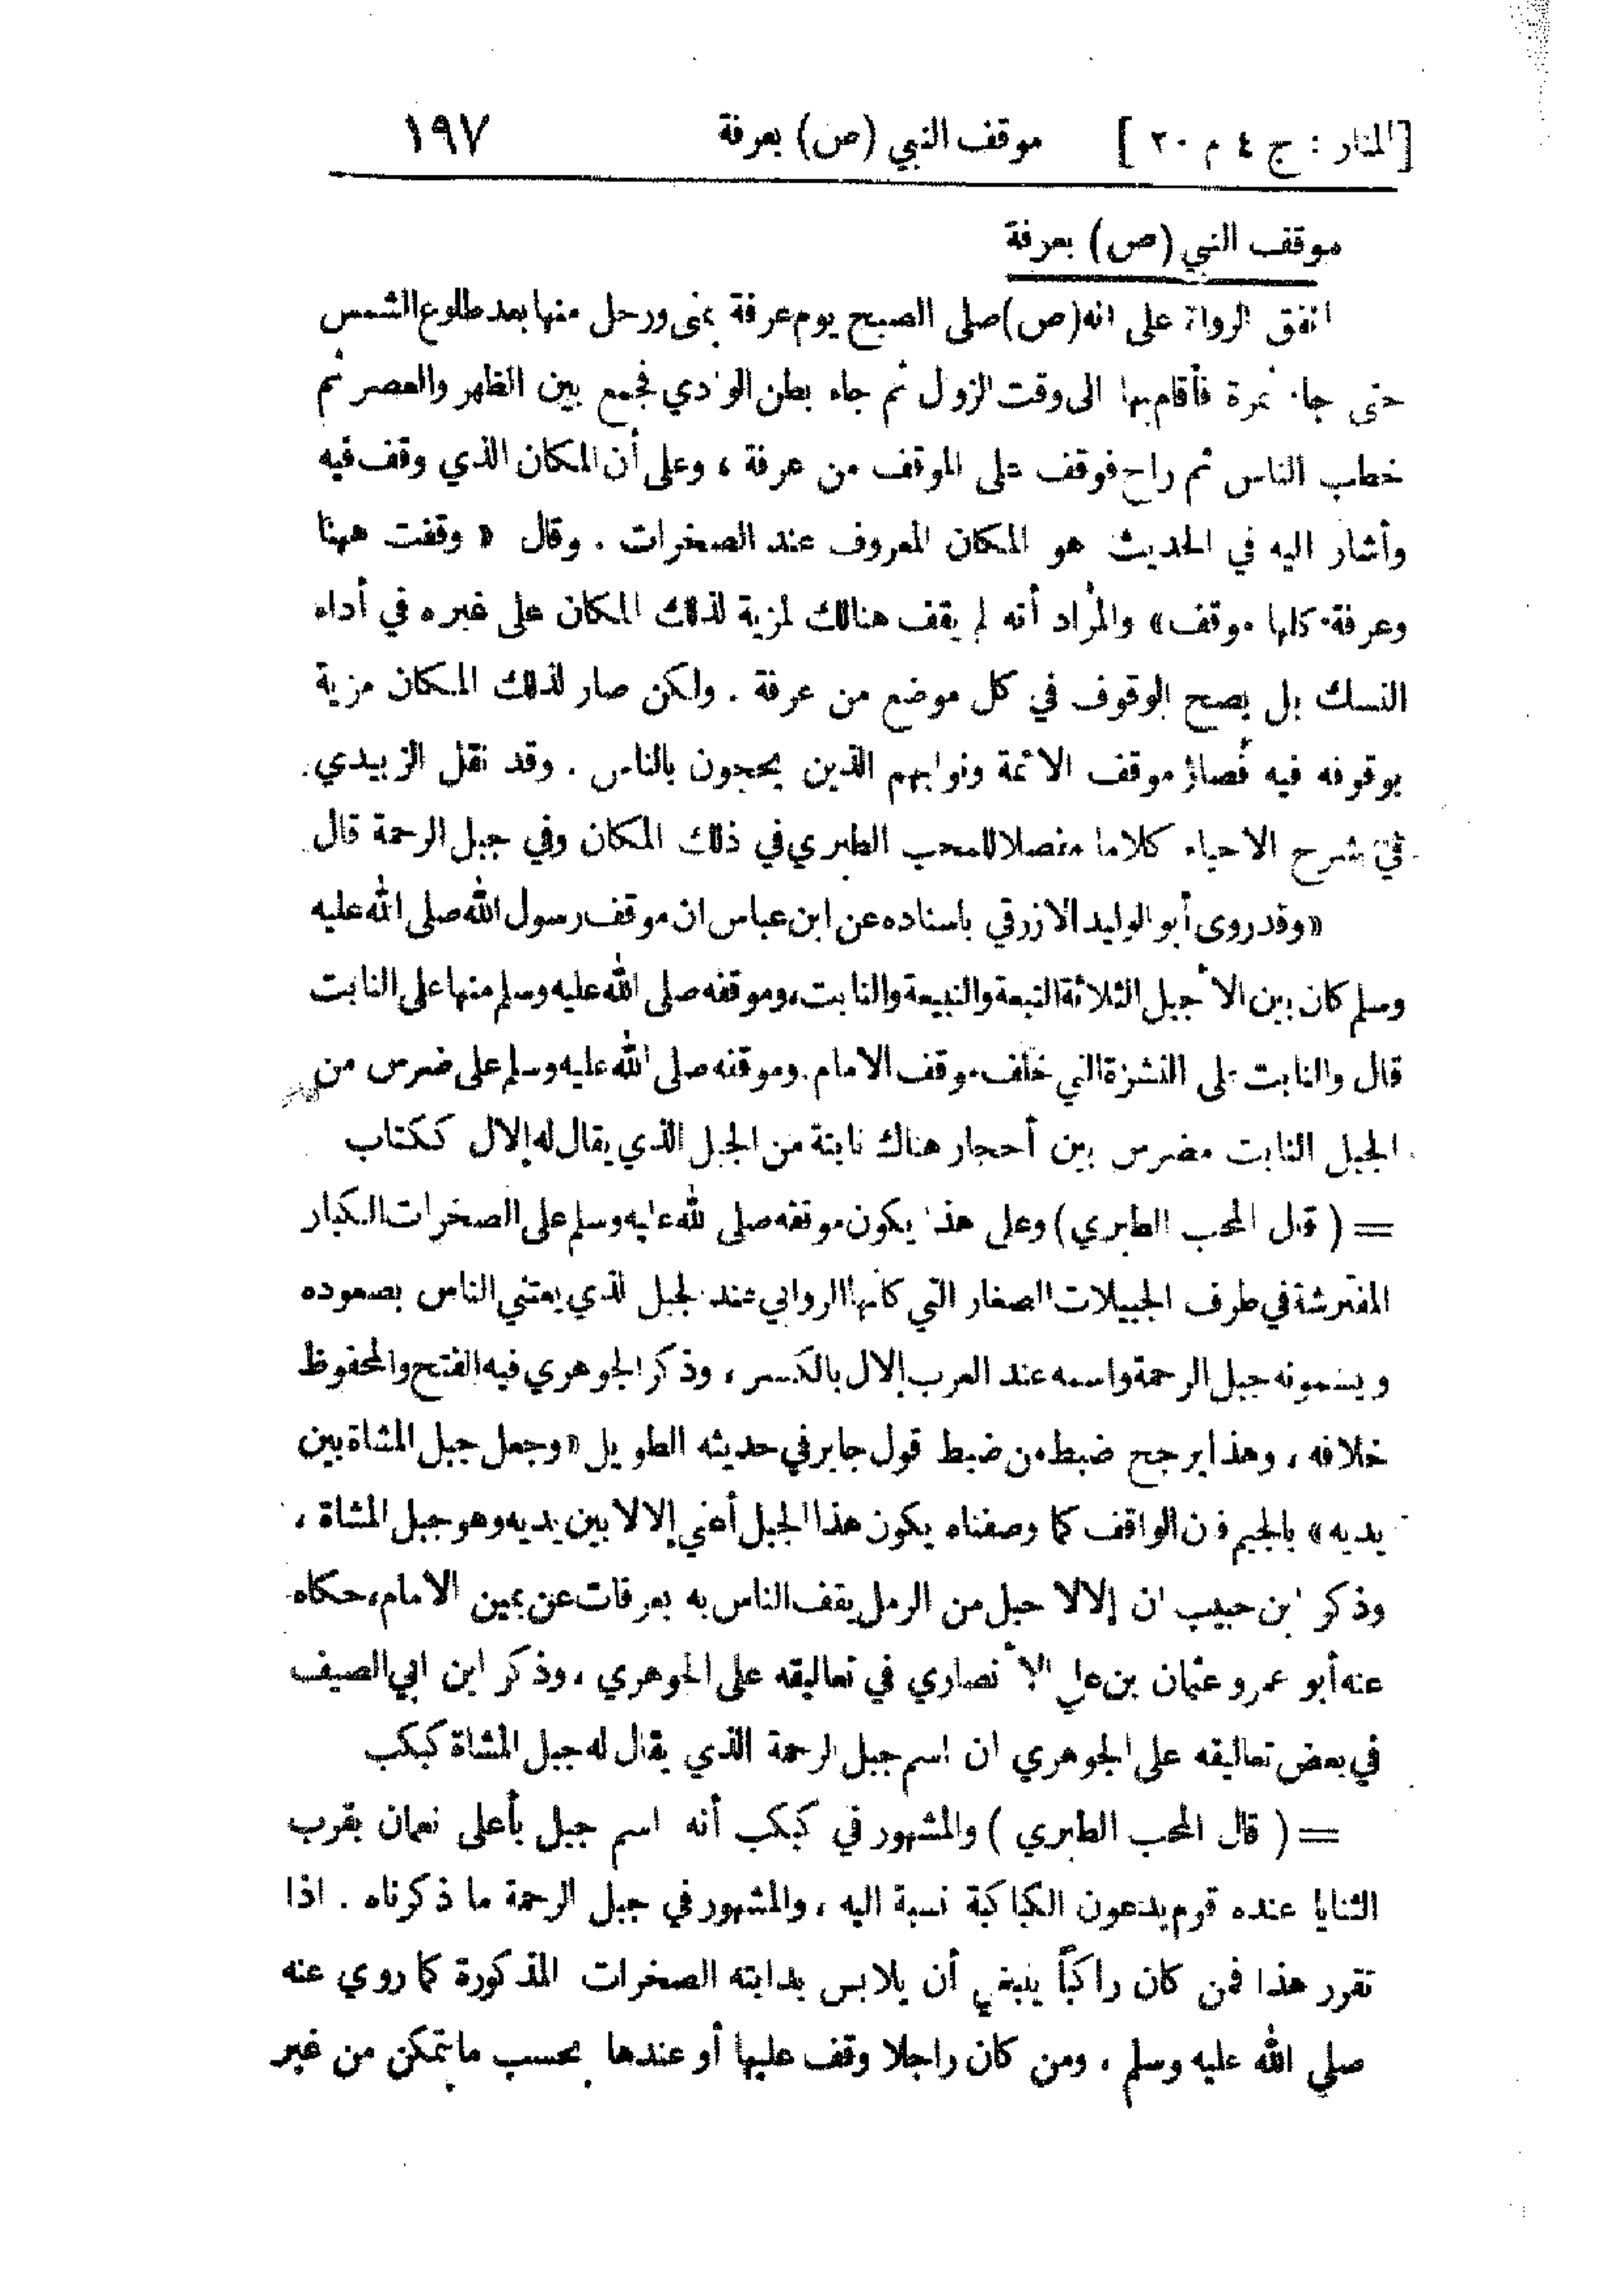 [المنار : ج ٤ م ٢٠ ] موقف النبي (ص) بعرفة ١٩٧
موقف النبي (ص) بعرفة
اتفق الرواة على انه (ص) صلى الصبح يوم عرفة بمنى ورحل منها بعد طلوع الشمس
حتى جاء نمرة فأقام بها الى وقت الزول ثم جاء بطن الوادي فجمع بين الظهر والعصر ثم
خطب الناس ثم راح فوقف على الموقف من عرفة ، وعلى أن المكان الذي وقف فيه
وأشار اليه في الحديث هو المكان المعروف عند الصخرات . وقال « وقفت ههنا
وعرفة كلها موقف » والمراد أنه لم يقف هنالك لمزية لذلك المكان على غيره في أداء
النسك بل يصح الوقوف في كل موضع من عرفة . ولكن صار لذلك المكان مزية
بوقوفه فيه فصار موقف الائمة ونوابهم الذين يحجون بالناس . وقد نقل الزبيدي
في شرح الاحياء كلاما مفصلا للمحب الطبري في ذلك المكان وفي جبل الرحمة قال
« وقد روى أبو الوليد الازرقي باسناده عن ابن عباس ان موقف رسول الله صلى الله عليه
وسلم كان بين الأجبل الثلاثة النبعة والنبيعة والنابت، وموقفه صلى الله عليه وسلم منها على النابت
قال والنابت على النشزة التي خلف موقف الامام. وموقفه صلى الله عليه وسلم على ضرس من
الجبل النابت مضرس بين أحجار هناك نابتة من الجبل الذي يقال له إلال ككتاب
= ( قال المحب الطبري ) وعلى هذا يكون موقفه صلى الله عليه وسلم على الصخرات الكبار
المفترشة في طرف الجبيلات الصغار التي كأنها الروابي عند الجبل الذي يعتني الناس بصعوده
ويسمونه جبل الرحمة واسمه عند العرب إلال بالكسر ، وذكر الجوهري فيه الفتح والمحفوظ
خلافه ، وهذا يرجح ضبط من ضبط قول جابر في حديثه الطويل « وجعل جبل المشاة بين
يديه » بالجيم فان الواقف كما وصفناه يكون هذا الجبل أعني إلالا بين يديه وهو جبل المشاة ،
وذكر ابن حبيب ان إلالا حبل من الرمل يقف الناس به بعرفات عن يمين الامام، حكاه
عنه أبو عمرو عثمان بن علي الأنصاري في تعاليقه على الجوهري ، وذكر ابن ابي الصيف
في بعض تعاليقه على الجوهري ان اسم جبل الرحمة الذي يقال له جبل المشاة كبكب
= ( قال المحب الطبري ) والمشهور في كبكب أنه اسم جبل بأعلى نعمان بقرب
الثنايا عنده قوم يدعون الكباكبة نسبة اليه ، والمشهور في جبل الرحمة ما ذكرناه . اذا
تقرر هذا فمن كان راكباً ينبغي أن يلابس بدابته الصخرات المذكورة كما روي عنه
صلى الله عليه وسلم ، ومن كان راجلا وقف عليها أو عندها بحسب ما يتمكن من غير